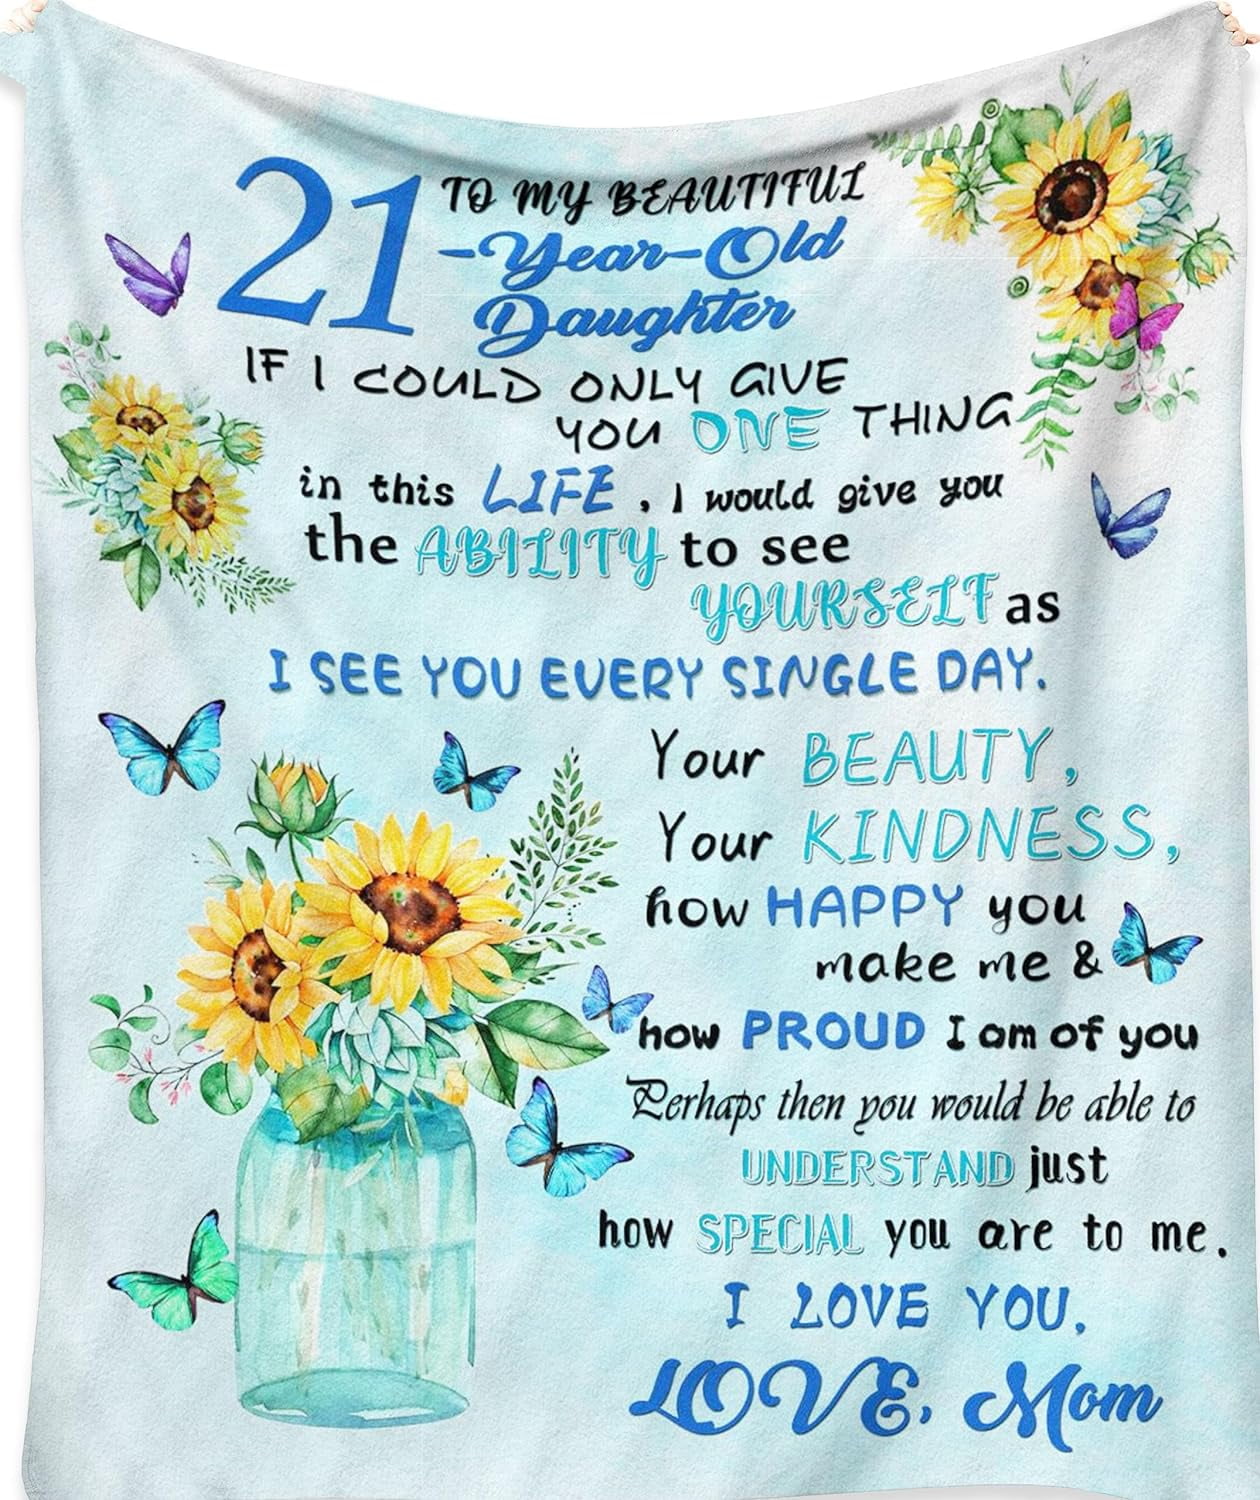 21 TO MY BEAUTIFUL
-Year-Old
Daughter
IF I COULD ONLY GIVE
YOU ONE THING
in this LIFE, I would give you
the ABILITY to see
YOURSELF as
I SEE YOU EVERY SINGLE DAY.
Your BEAUTY,
Your KINDNESS,
how HAPPY you
make me &
how PROUD I am of you
Perhaps then you would be able to
UNDERSTAND just
how SPECIAL you are to me.
I LOVE YOU,
LOVE, Mom